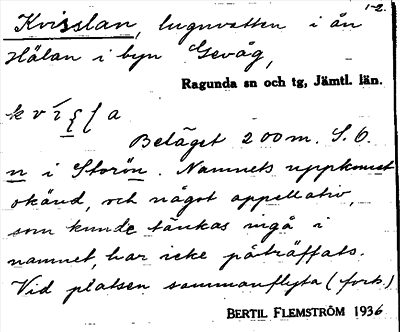 1-2.
Kvisslan, lugnvatten i ån
Hälan i byn Gevåg,
Ragunda sn och tg, Jämtl. län.
Beläget 200 m. S. O.
n i Storön. Namnets uppkomst
okänd, och något appellativ,
som kunde tänkas ingå i
namnet, har icke påträffats.
Vid platsen sammanflyta (forts.)
BERTIL FLEMSTRÖM 1936